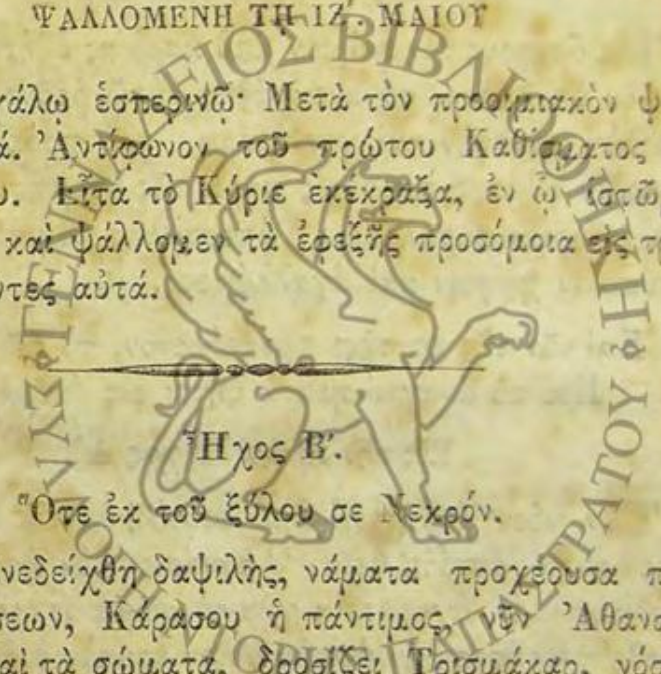 ΨΑΛΛΟΜΕΝΗ ΤΗ ΙΖʹ. ΜΑΙΟΥ
γάλῳ ἑσπερινῷ· Μετὰ τὸν προοιμιακὸν ψ
ά. Ἀντίφωνον τοῦ πρώτου Καθίσματος
υ. Εἶτα τὸ Κύριε ἐκέκραξα, ἐν ᾧ ἱστῶ
καὶ ψάλλομεν τὰ ἐφεξῆς προσόμοια εἰς τ
ντες αὐτά.
Ἦχος Βʹ.
Ὅτε ἐκ τοῦ ξύλου σε Νεκρόν.
νεδείχθη δαψιλὴς, νάματα προχέουσα π
σεων, Κάρασου ἡ πάντιμος, νῦν Ἀθανα
αὶ τὰ σώματα, δροσίζει Τρισμάκαρ, νόσ
ΓΕΝΝΑΔΕΙΟΣ ΒΙΒΛΙΟΘΗΚΗ
ΣΥΛΛΟΓΗ ΝΤΟΡΗΣ ΠΑΠΑΣΤΡΑΤΟΥ